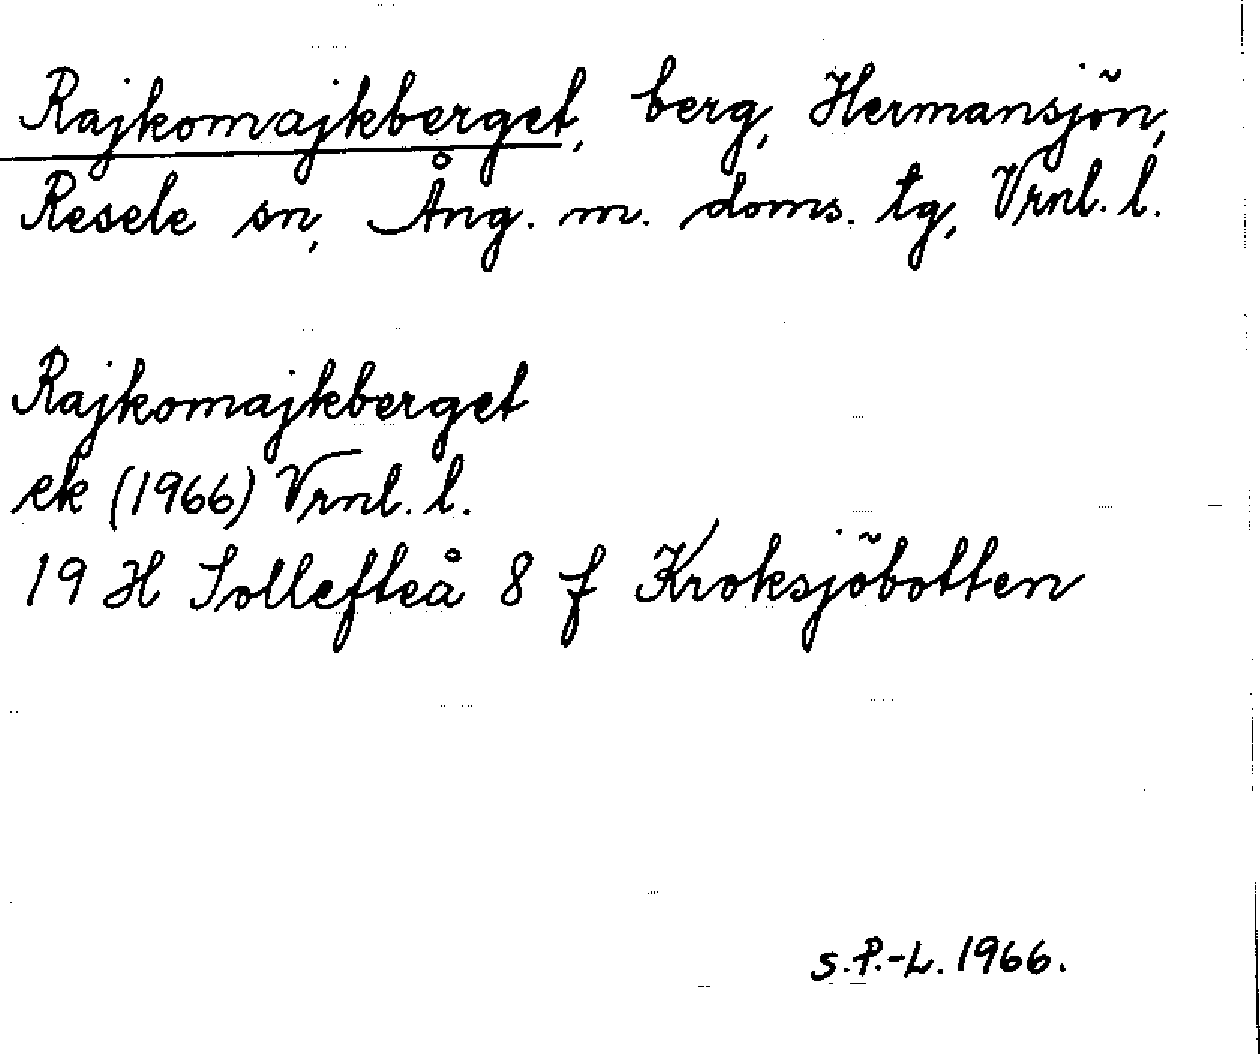 Rajkomajkberget, berg, Hermansjön,
Resele sn, Ång. m. doms. tg, Vrnl. l.
Rajkomajkberget
ek (1966) Vrnl. l.
19 H Sollefteå 8 f Kroksjöbotten
S.P.-L. 1966.